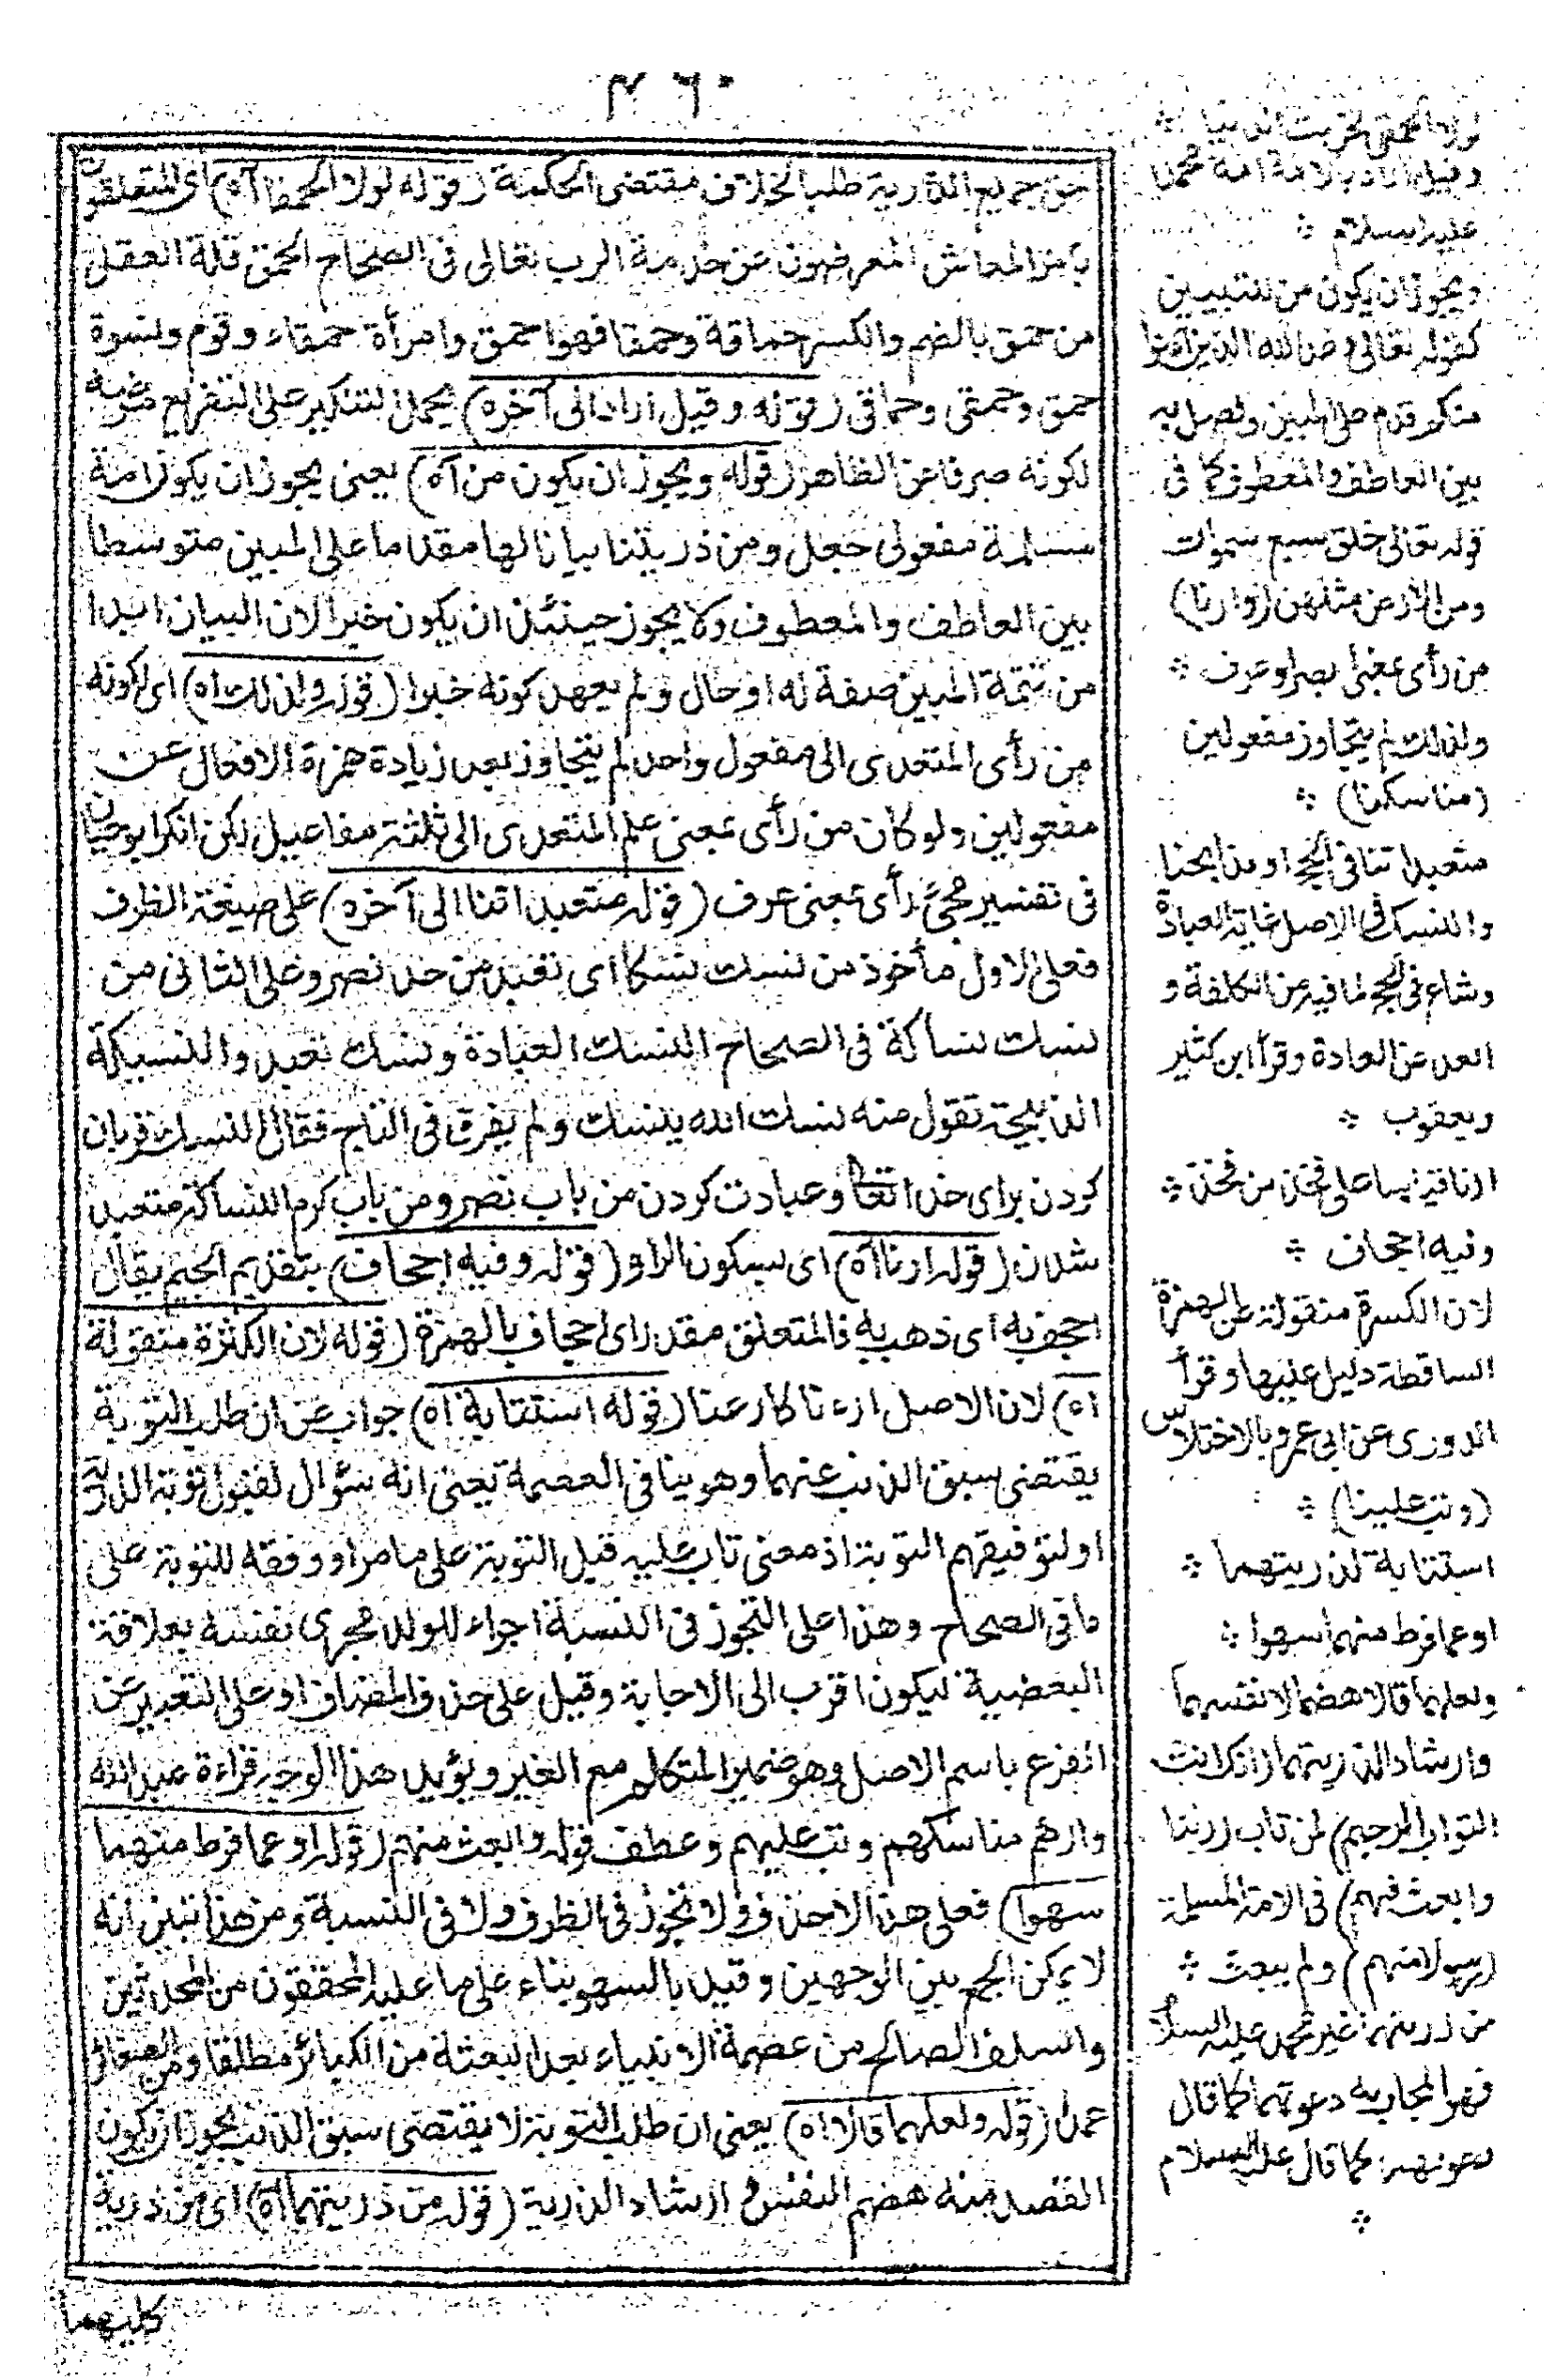 ٤٦٠
حق جميع الذرية طلبا لخلاف مقتضى الحكمة (قوله لولا الحمقا آه) اى المتعلقون
بامر المعاش المعرضون عن خدمة الرب تعالى فى الصحاح الحمق قلة العقل
من حمق بالضم والكسر حماقة وحمقا فهو احمق وامرأة حمقاء وقوم ونسوة
حمق وحمقى وحماقى (قوله وقيل اراد الى آخره) يحمل التنكير على التفريع
لكونه صرفا عن الظاهر (قوله ويجوز ان يكون من آه) يعنى يجوز ان يكون امة
مسلمة مفعولى جعل ومن ذريتنا بيانا لها مقدما على المبين متوسطا
بين العاطف والمعطوف ولا يجوز حينئذ ان يكون خبرا لان البيان ابدا
من تتمة المبين صفة له او حال ولم يعهد كونه خبرا (قوله ولذلك اه) اى لكونه
من رأى المتعدى الى مفعول واحد لم يتجاوز بعد زيادة همزة الافعال عن
مفعولين ولو كان من رأى بمعنى علم المتعدى الى ثلثة مفاعيل لكن انكر ابو حيان
فى تفسير مجئ رأى بمعنى عرف (قوله متعبداتنا الى آخره) على صيغة الظرف
فعلى الاول مأخوذ من نسك نسكا اى تعبد من حد نصر وعلى الثانى من
نسك نساكة فى الصحاح النسك العبادة ونسك تعبد والنسيكة
الذبيحة تقول منه نسك لله ينسك ولم يفرق فى التاج فقال النسك قربان
كردن براى خداتعا وعبادت كردن من باب نصر ومن باب كرم النساكة متعبد
شدن (قوله ارنا آه) اى بسكون الراء (قوله وفيه اجحاف) بتقديم الجيم يقال
اجحف به اى ذهب به فالمتعلق مقدر اى اجحاف بالهمزة (قوله لان الكسرة منقولة
اه) لان الاصل ارءنا كارعنا (قوله استتابة اه) جواب عن ان طلب التوبة
يقتضى سبق الذنب عنهما وهو ينافى العصمة يعنى انه سؤال لقبول توبة الذرية
او لتوفيقهم التوبة اذ معنى تاب عليه قبل التوبة على ما مر او وفقه للتوبة على
ما فى الصحاح وهذا على التجوز فى النسبة اجراء للولد مجرى نفسه بعلاقة
البعضية ليكون اقرب الى الاجابة وقيل على حذف المضاف او على التعبير عن
الفرع باسم الاصل وهو ضمير المتكلم مع الغير ويؤيد هذا الوجه قراءة عبد الله
وارهم مناسكهم وتب عليهم وعطف قوله وابعث منهم (قوله او عما فرط منهما
سهوا) فعلى هذا لا حذف ولا تجوز فى الظرف ولا فى النسبة ومن هذا تبين انه
لا يمكن الجمع بين الوجهين وقيد بالسهو بناء على ما عليه المحققون من المحدثين
والسلف الصالح من عصمة الانبياء بعد البعثة من الكبائر مطلقا ومن الصغائر
عمدا (قوله ولعلهما قالا اه) يعنى ان طلب التوبة لا يقتضى سبق الذنب يجوز ان يكون
القصد منه هضم النفس و ارشاد الذرية (قوله من ذريتهما آه) اى من ذرية
كليهما
لولا الحمقى لخربت الدنيا
وقيل اراد بالامة امة محمد
عليه السلام
ويجوز ان يكون من للتبيين
كقوله تعالى وعد الله الذين آمنوا
منكم قدم على المبين وفصل به
بين العاطف والمعطوف كما فى
قوله تعالى خلق سبع سموات
ومن الارض مثلهن (وارنا)
من رأى بمعنى بصر او عرف
ولذلك لم يتجاوز مفعولين
(مناسكنا)
متعبداتنا فى الحج او مذابحنا
والنسك فى الاصل غاية العبادة
وشاع فى الحج لما فيه من الكلفة و
البعد عن العادة وقرأ ابن كثير
ويعقوب
ارنا قياسا على فخذ من فخذ
وفيه اجحاف
لان الكسرة منقولة عن الهمزة
الساقطة دليل عليها وقرأ
الدورى عن ابى عمرو بالاختلاس
(وتب علينا)
استتابة لذريتهما
او عما فرط منهما سهوا
ولعلهما قالا هضما لانفسهما
وارشادا لذريتهما (انك انت
التواب الرحيم) لمن تاب (ربنا
وابعث فيهم) فى الامة المسلمة
(رسولا منهم) ولم يبعث
من ذريتهما غير محمد عليه السلا
فهو المجاب به دعوتهما كما قال
كما قال عليه السلام